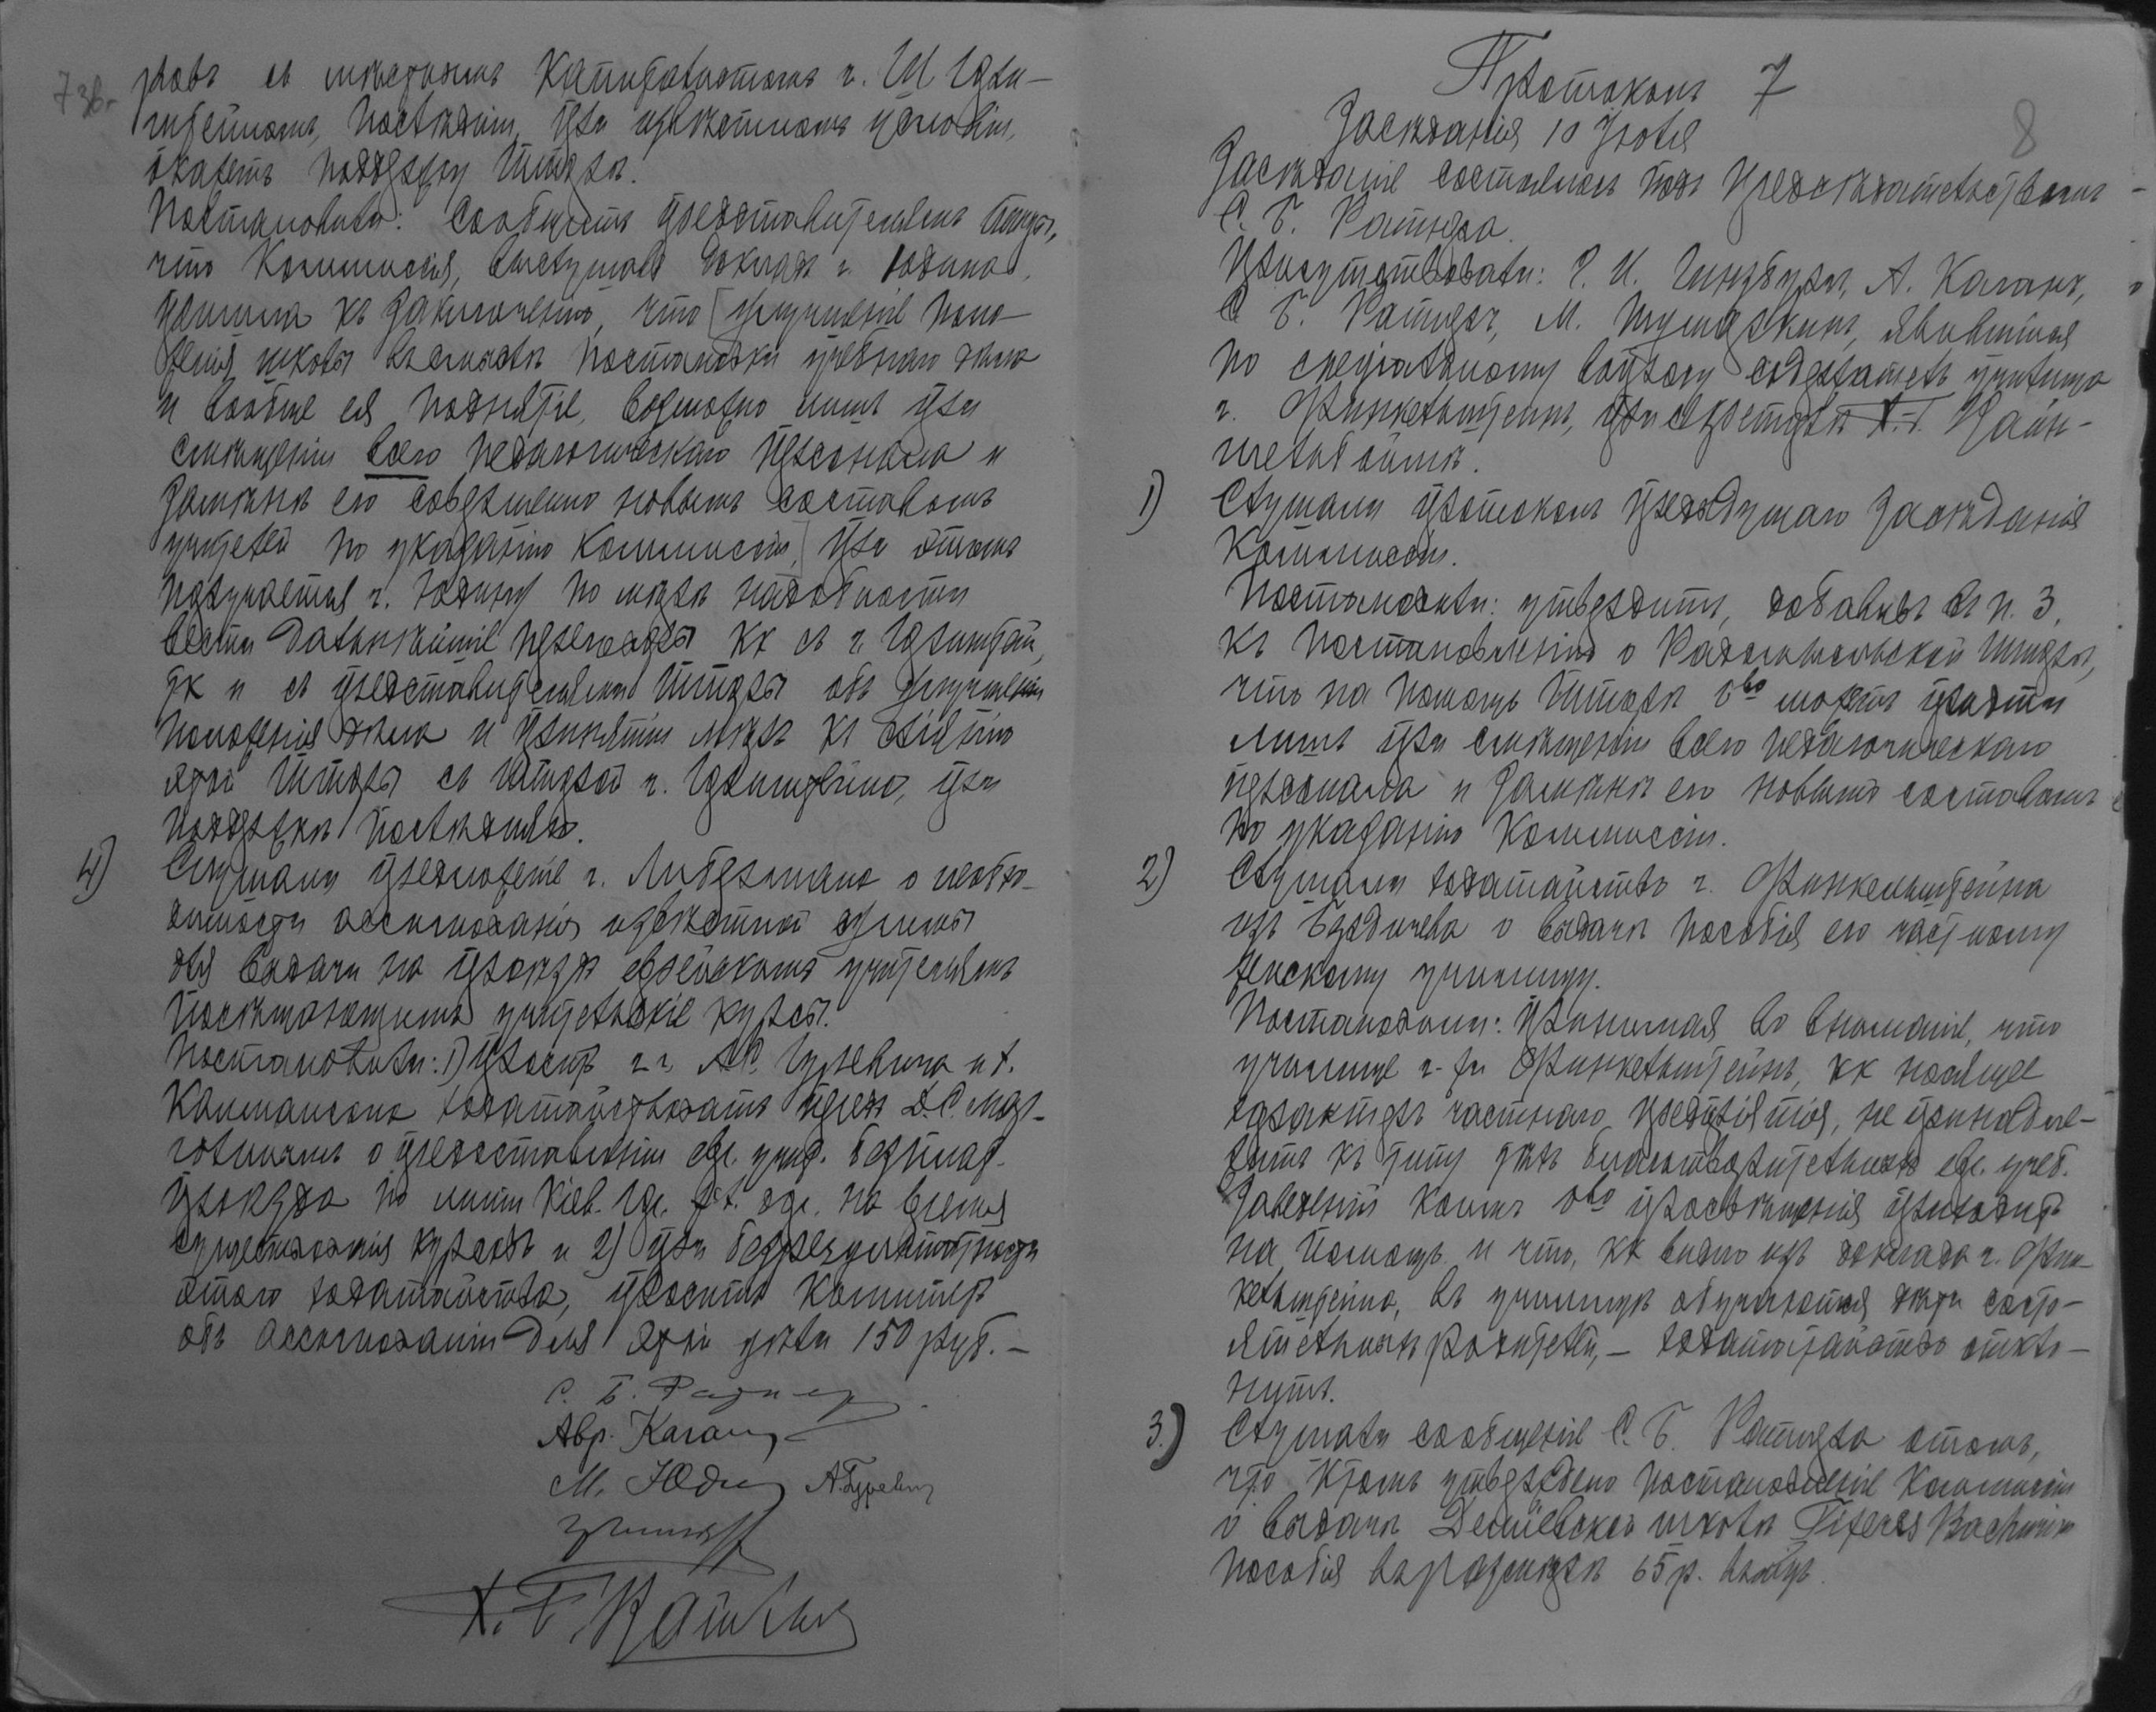 7 зв.
ровъ съ мѣстнымъ капиталистомъ г. Ш. Грин-
штейномъ, послѣдній, при извѣстномъ условіи,
окажетъ поддержку школѣ.
Постановили: сообщить представителямъ
что Коммиссія, выслушавъ докладъ г. Юдина,
пришла къ заключенію, что [улучшеніе поло-
женія школы въ смыслѣ постановки учебнаго дѣла
и вообще ея поднятіе, возможно лишь при
смѣщеніи всего педагогическаго персонала и
замѣнѣ его совершенно новымъ составомъ
учителей по указанію Коммиссіи,] при этомъ
поручается г. Юдину по мѣрѣ надобности
вести дальнѣйшіе переговоры кк съ г. Гринштейн,
тк и съ представителями объ улучшеніи
положенія дѣла и принятіи мѣръ къ сліянію
этой съ г. Гринштейна, при
поддержкѣ послѣдняго.
4) Слушали предложеніе г. Либермана о необхо-
димости ассигнованія извѣстной суммы
для выдачи на проѣздъ еврейскимъ учителямъ
посѣщающимъ учительскіе курсы.
Постановили: 1) просить г.г. А. Гуревича и А.
Каплансона ходатайствовать предъ Д. С. Мар-
голинымъ о предоставленіи евр. учит. безплат.
проѣзда по линіи Кіев. гор. ж. дор. на время
существованія курсовъ и 2) при безрезультатности
этого ходатайства, просить Комитетъ
объ ассигнованіи для этой цѣли 150 руб. —
С. Б. Ратнеръ
Авр. Каганъ
М. Юдин А. Гуревич
Х. Г.
Протоколъ 7
8
Засѣданія 10 Іюля
Засѣданіе состоялось подъ предсѣдательствомъ
С. Б. Ратнера.
Присутствовали: Г. И. Гинзбургъ, А. Каганъ,
С. Б. Ратнеръ, М. явившійся
по спеціальному вызову содержатель училища
г. Финкельштейнъ, при секретарѣ Х. Г. Вайн-
шельбоймѣ.
1) Слушали протоколъ предыдущаго засѣданія
Коммиссіи.
Постановили: утвердить, добавивъ въ п. 3,
къ постановленію о Радомысльской
что на помощь Об-во можетъ прійти
лишь при смѣщеніи всего педагогическаго
персонала и замѣнѣ его новымъ составомъ
по указанію Коммиссіи.
2) Слушали ходатайство г. Финкельштейна
изъ Бердичева о выдачѣ пособія его частному
женскому училищу.
Постановили: Принимая во вниманіе, что
училище г-на Финкельштейнъ, кк носящее
характеръ частнаго предпріятія, не принадле-
житъ къ типу тѣхъ благотворительныхъ евр. учеб.
заведеній коимъ Об-во просвѣщенія приходитъ
на помощь и что, кк видно изъ доклада г. Фин-
кельштейна, въ училищѣ обучаются дѣти состо-
ятельныхъ родителей, — ходатайство откло-
нить.
3.) Слушали сообщеніе С. Б. Ратнера о томъ,
что К-томъ утверждено постановленіе Коммиссіи
о выдачѣ школѣ Tiferes Bachurim
пособія въ размѣрѣ 65 р.